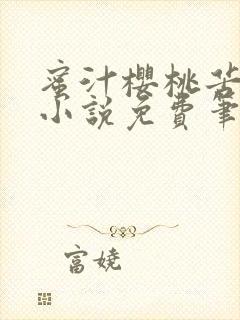 蜜汁櫻桃苦
小說免費筆
富娆